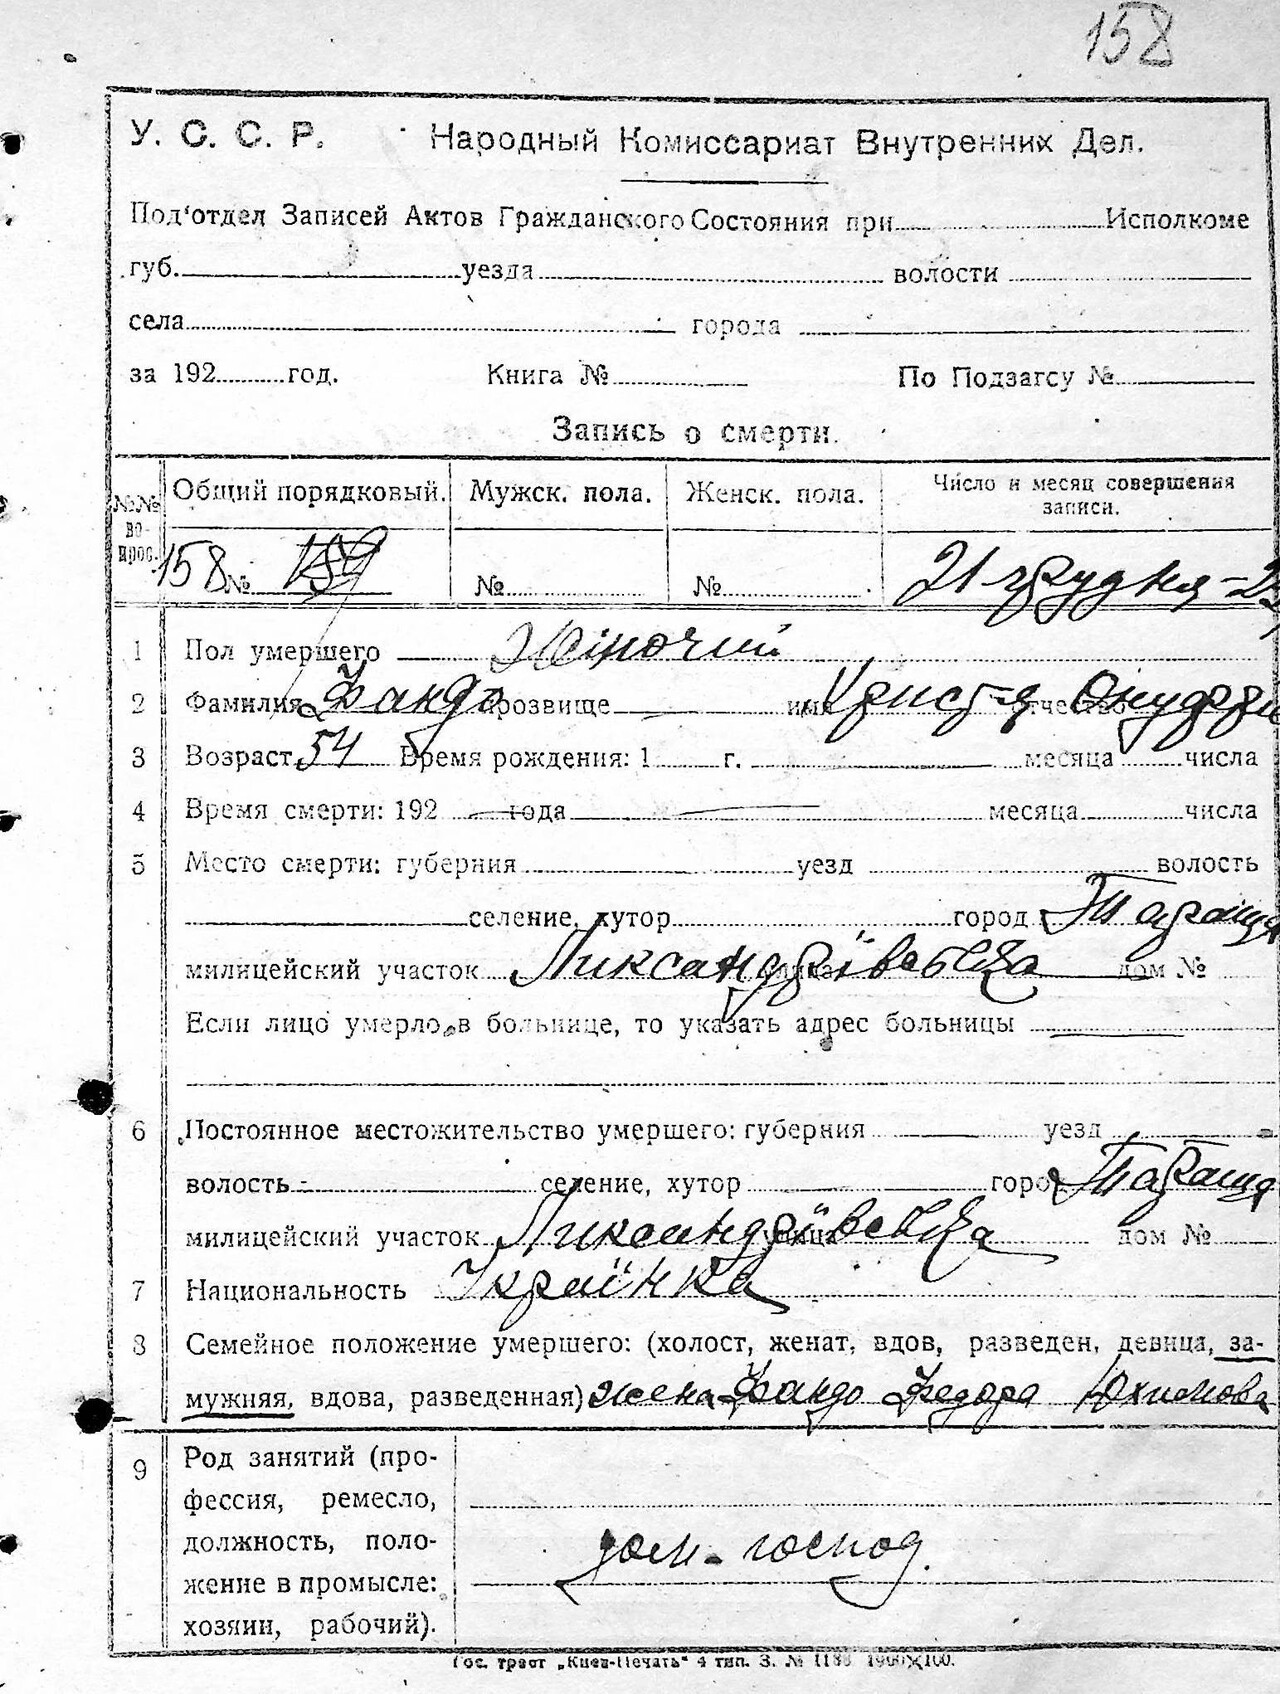 158
У. С. С. Р. Народный Комиссариат Внутренних Дел.
Под'отдел Записей Актов Гражданского Состояния при Исполкоме
губ. уезда волости
села города
за 192 год. Книга № По Подзагсу №
Запись о смерти.
№№ вопрос. Общий порядковый. Мужск. пола. Женск. пола. Число и месяц совершения записи.
158 № 159 № № 21 грудня
1 Пол умершего Жіночий
2 Фамилия Фандо прозвище имя Христя отчество Онуфрі
3 Возраст 54 Время рождения: 1 г. месяца числа
4 Время смерти: 192 года месяца числа
5 Место смерти: губерния уезд волость
селение, хутор город Тараща
милицейский участок улица Ликсандрівська дом №
Если лицо умерло в больнице, то указать адрес больницы
6 Постоянное местожительство умершего: губерния уезд
волость селение, хутор город Тараща
милицейский участок улица Ликсандрівська дом №
7 Национальность Українка
8 Семейное положение умершего: (холост, женат, вдов, разведен, девица, за-
мужняя, вдова, разведенная) жена Фандо Федора Юхимова
9 Род занятий (про-
фессия, ремесло,
должность, поло- дом-господ.
жение в промысле:
хозяин, рабочий).
Гос. трест „Киев-Печать" 4 тип. З. №